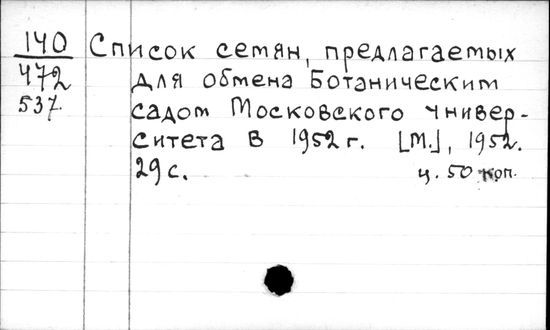 140 Список семян, предлагаемых
472 для обмена Ботаническим
537 садом Московского Универ-
ситета в 1952 г. [М.], 1952.
29 с. ц. 50 коп.